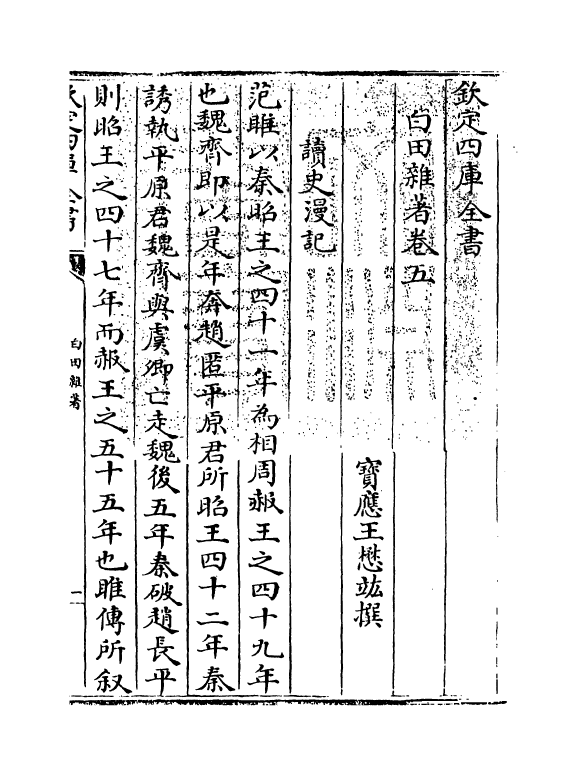 欽定四庫全書
白田雜著卷五
寶應王懋竑撰
讀史漫記
范睢以秦昭王之四十一年為相周赧王之四十九年
也魏齊即以是年奔趙匿平原君所昭王四十二年秦
誘執平原君魏齊與虞卿亡走魏後五年秦破趙長平
則昭王之四十七年而赧王之五十五年也睢傳所叙
白田雜著
一